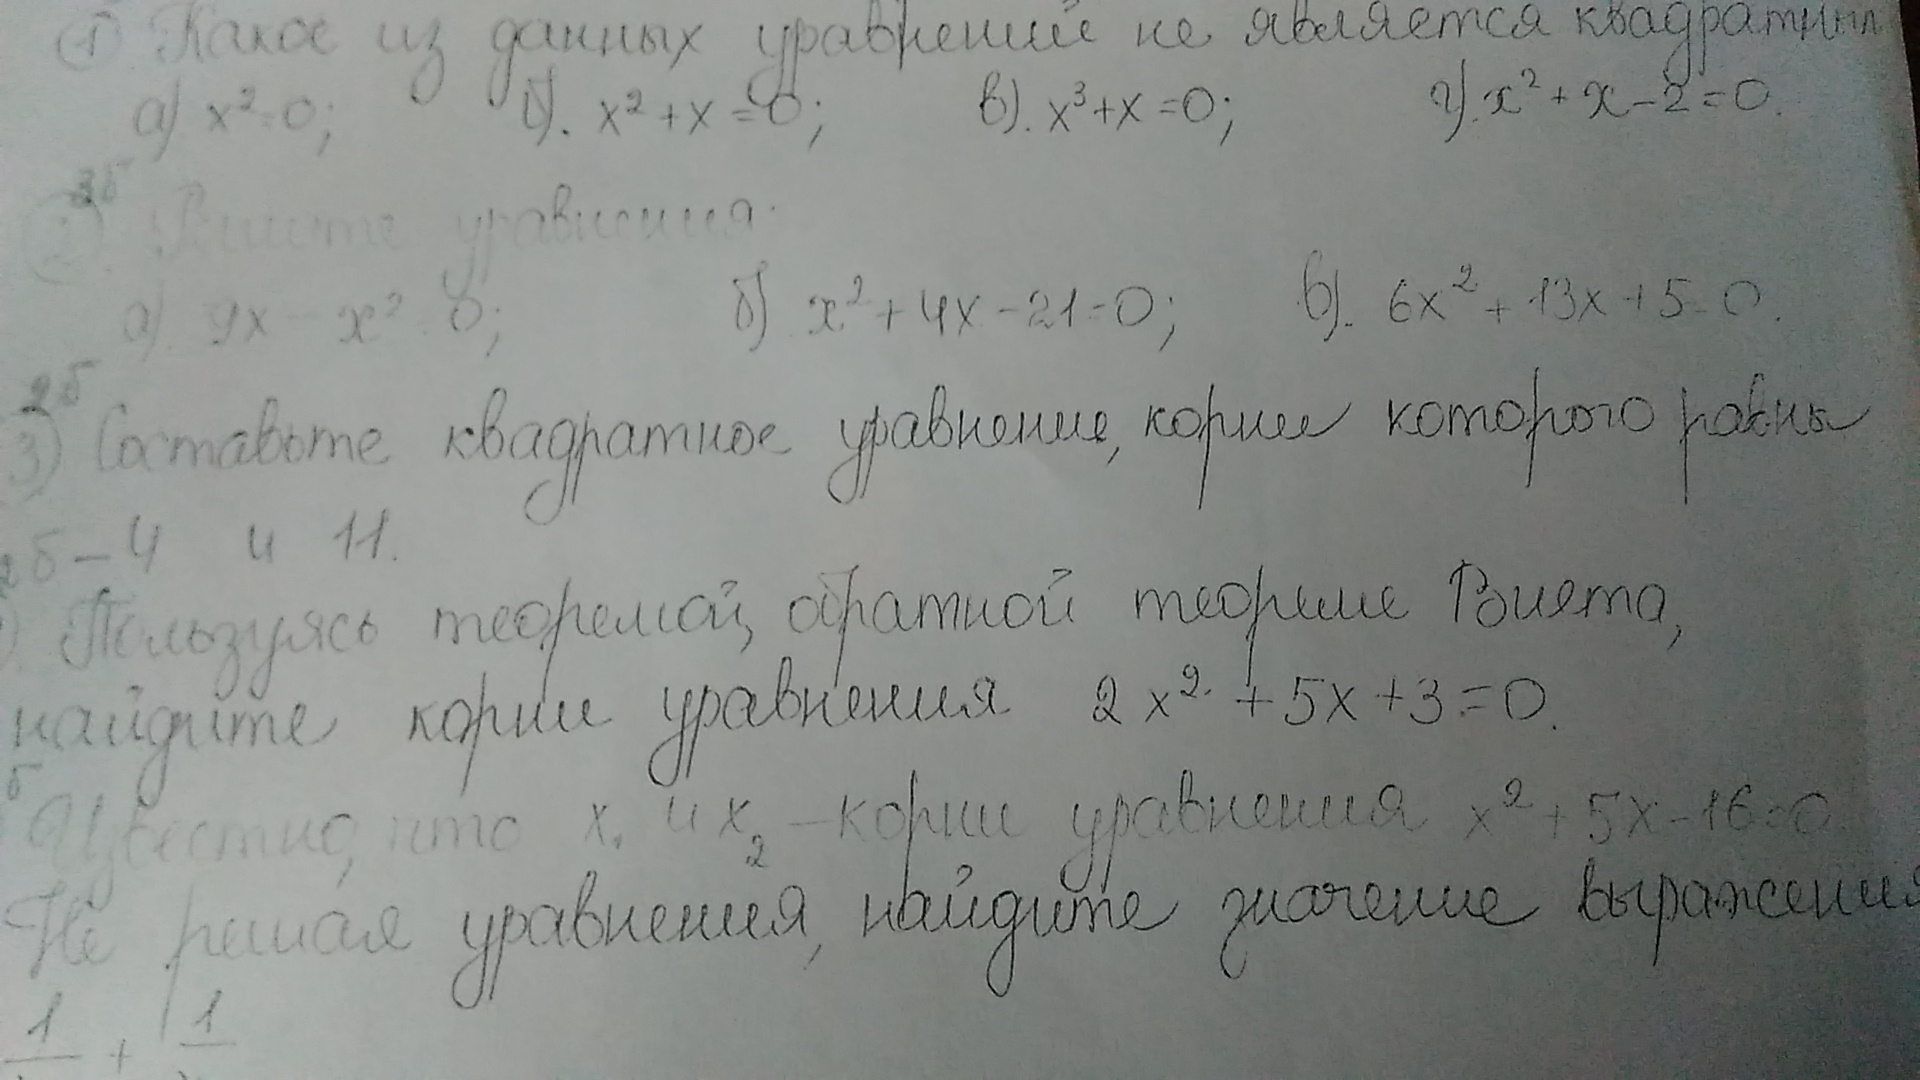 1) Какое из данных уравнений не является квадратным
а) x²=0; б). x²+x=0; в). x³+x=0; г). x²+x-2=0.
3б
2) Решите уравнения.
а). 9x - x² = 0; б) x²+4x-21=0; в). 6x²+13x+5=0.
2б
3) Составьте квадратное уравнение, корни которого равны
-4 и 11.
2б
Пользуясь теоремой, обратной теореме Виета,
найдите корни уравнения 2x²+5x+3=0.
б
Известно, что x₁ и x₂ - корни уравнения x²+5x-16=0
Не решая уравнения, найдите значение выражения
1 + 1